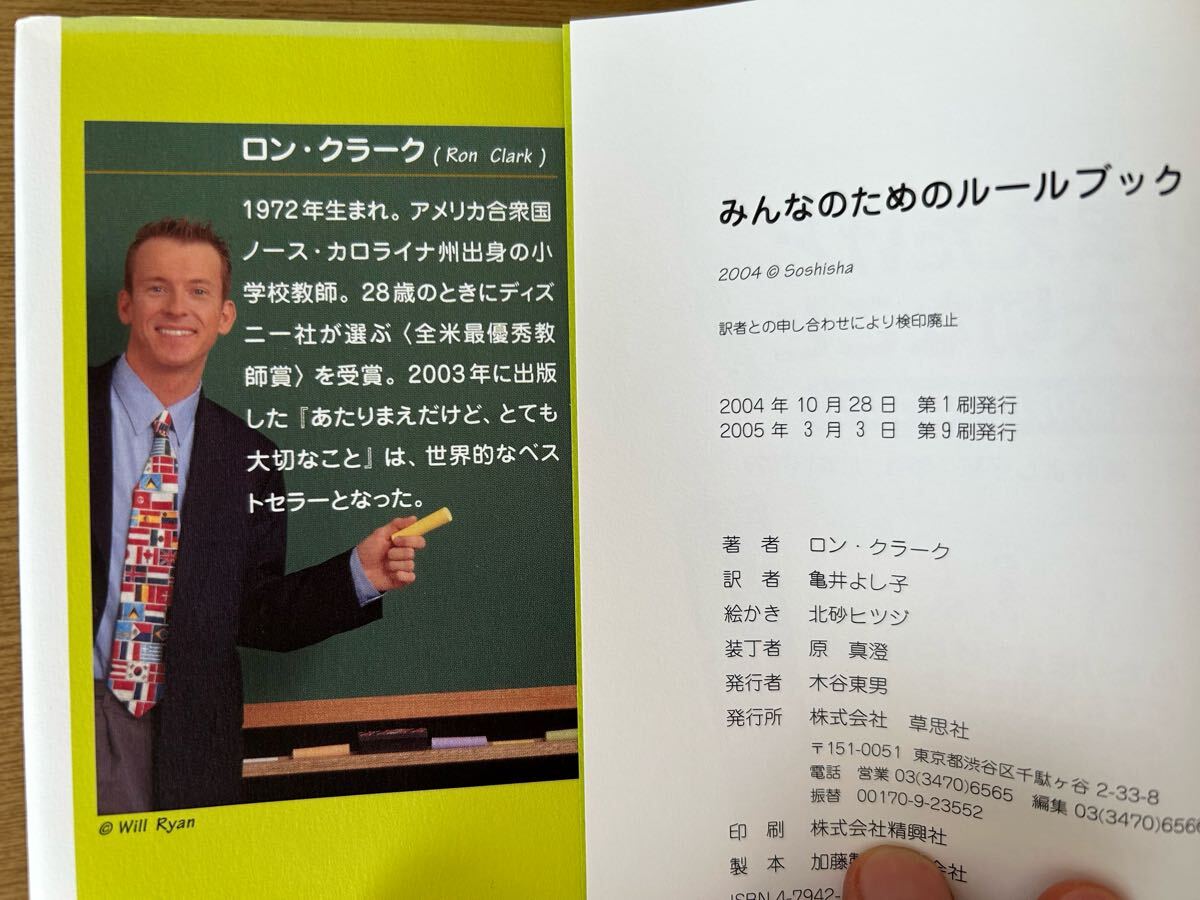 ロン・クラーク (Ron Clark)
1972年生まれ。アメリカ合衆国
ノース・カロライナ州出身の小
学校教師。28歳のときにディズ
ニー社が選ぶ〈全米最優秀教
師賞〉を受賞。2003年に出版
した『あたりまえだけど、とても
大切なこと』は、世界的なベス
トセラーとなった。
© Will Ryan
みんなのためのルールブック
2004 © Soshisha
訳者との申し合わせにより検印廃止
2004年 10月28日 第1刷発行
2005年 3月 3日 第9刷発行
著 者 ロン・クラーク
訳 者 亀井よし子
絵かき 北砂ヒツジ
装丁者 原 真澄
発行者 木谷東男
発行所 株式会社 草思社
〒151-0051 東京都渋谷区千駄ヶ谷 2-33-8
電話 営業 03(3470)6565 編集 03(3470)6566
振替 00170-9-23552
印 刷 株式会社精興社
製 本 加藤 会社
ISBN 4-7942-